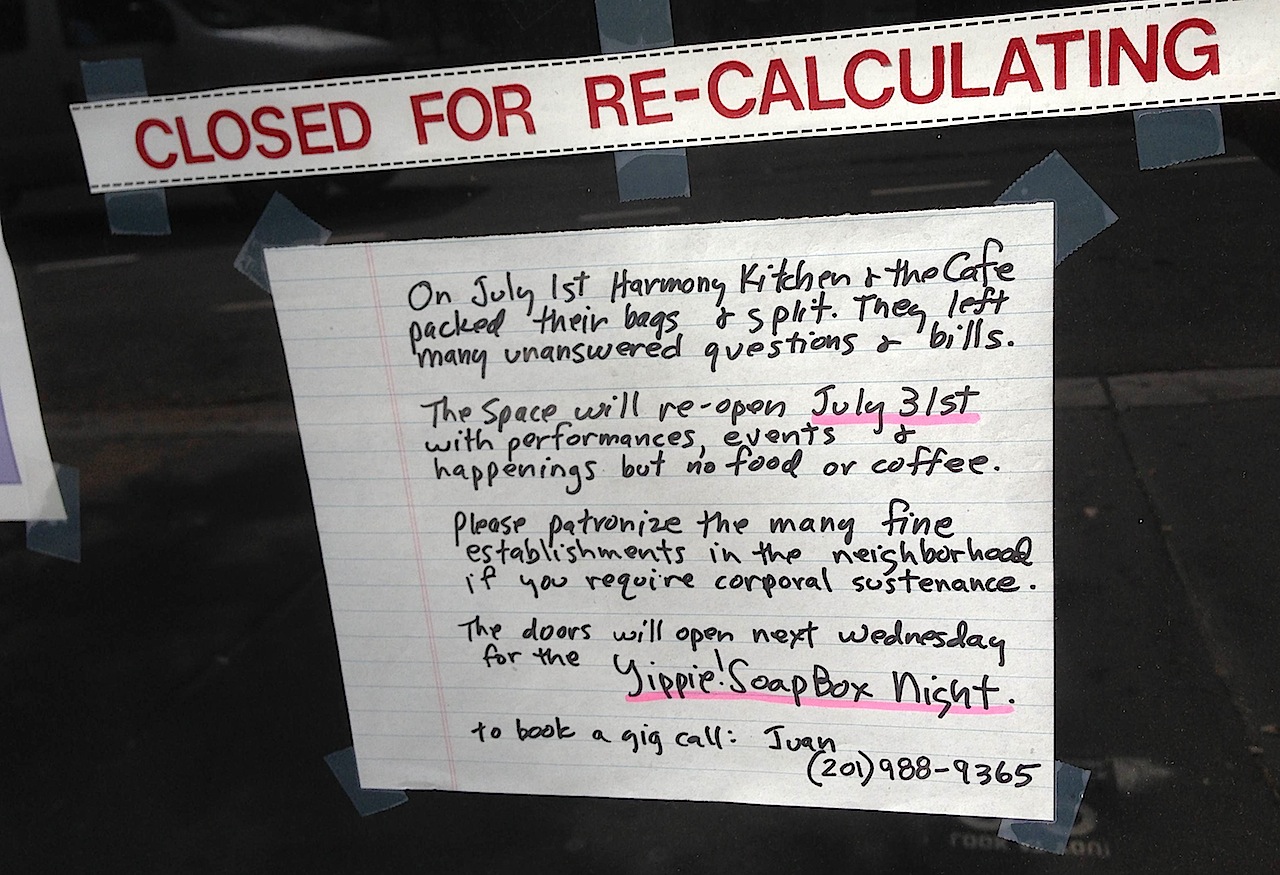 CLOSED FOR RE-CALCULATING
On July 1st Harmony Kitchen & the Cafe
packed their bags & split. They left
many unanswered questions & bills.
The Space will re-open July 31st
with performances, events &
happenings but no food or coffee.
Please patronize the many fine
establishments in the neighborhood
if you require corporal sustenance.
The doors will open next wednesday
for the Yippie! SoapBox Night.
to book a gig call: Juan
(201) 988-9365